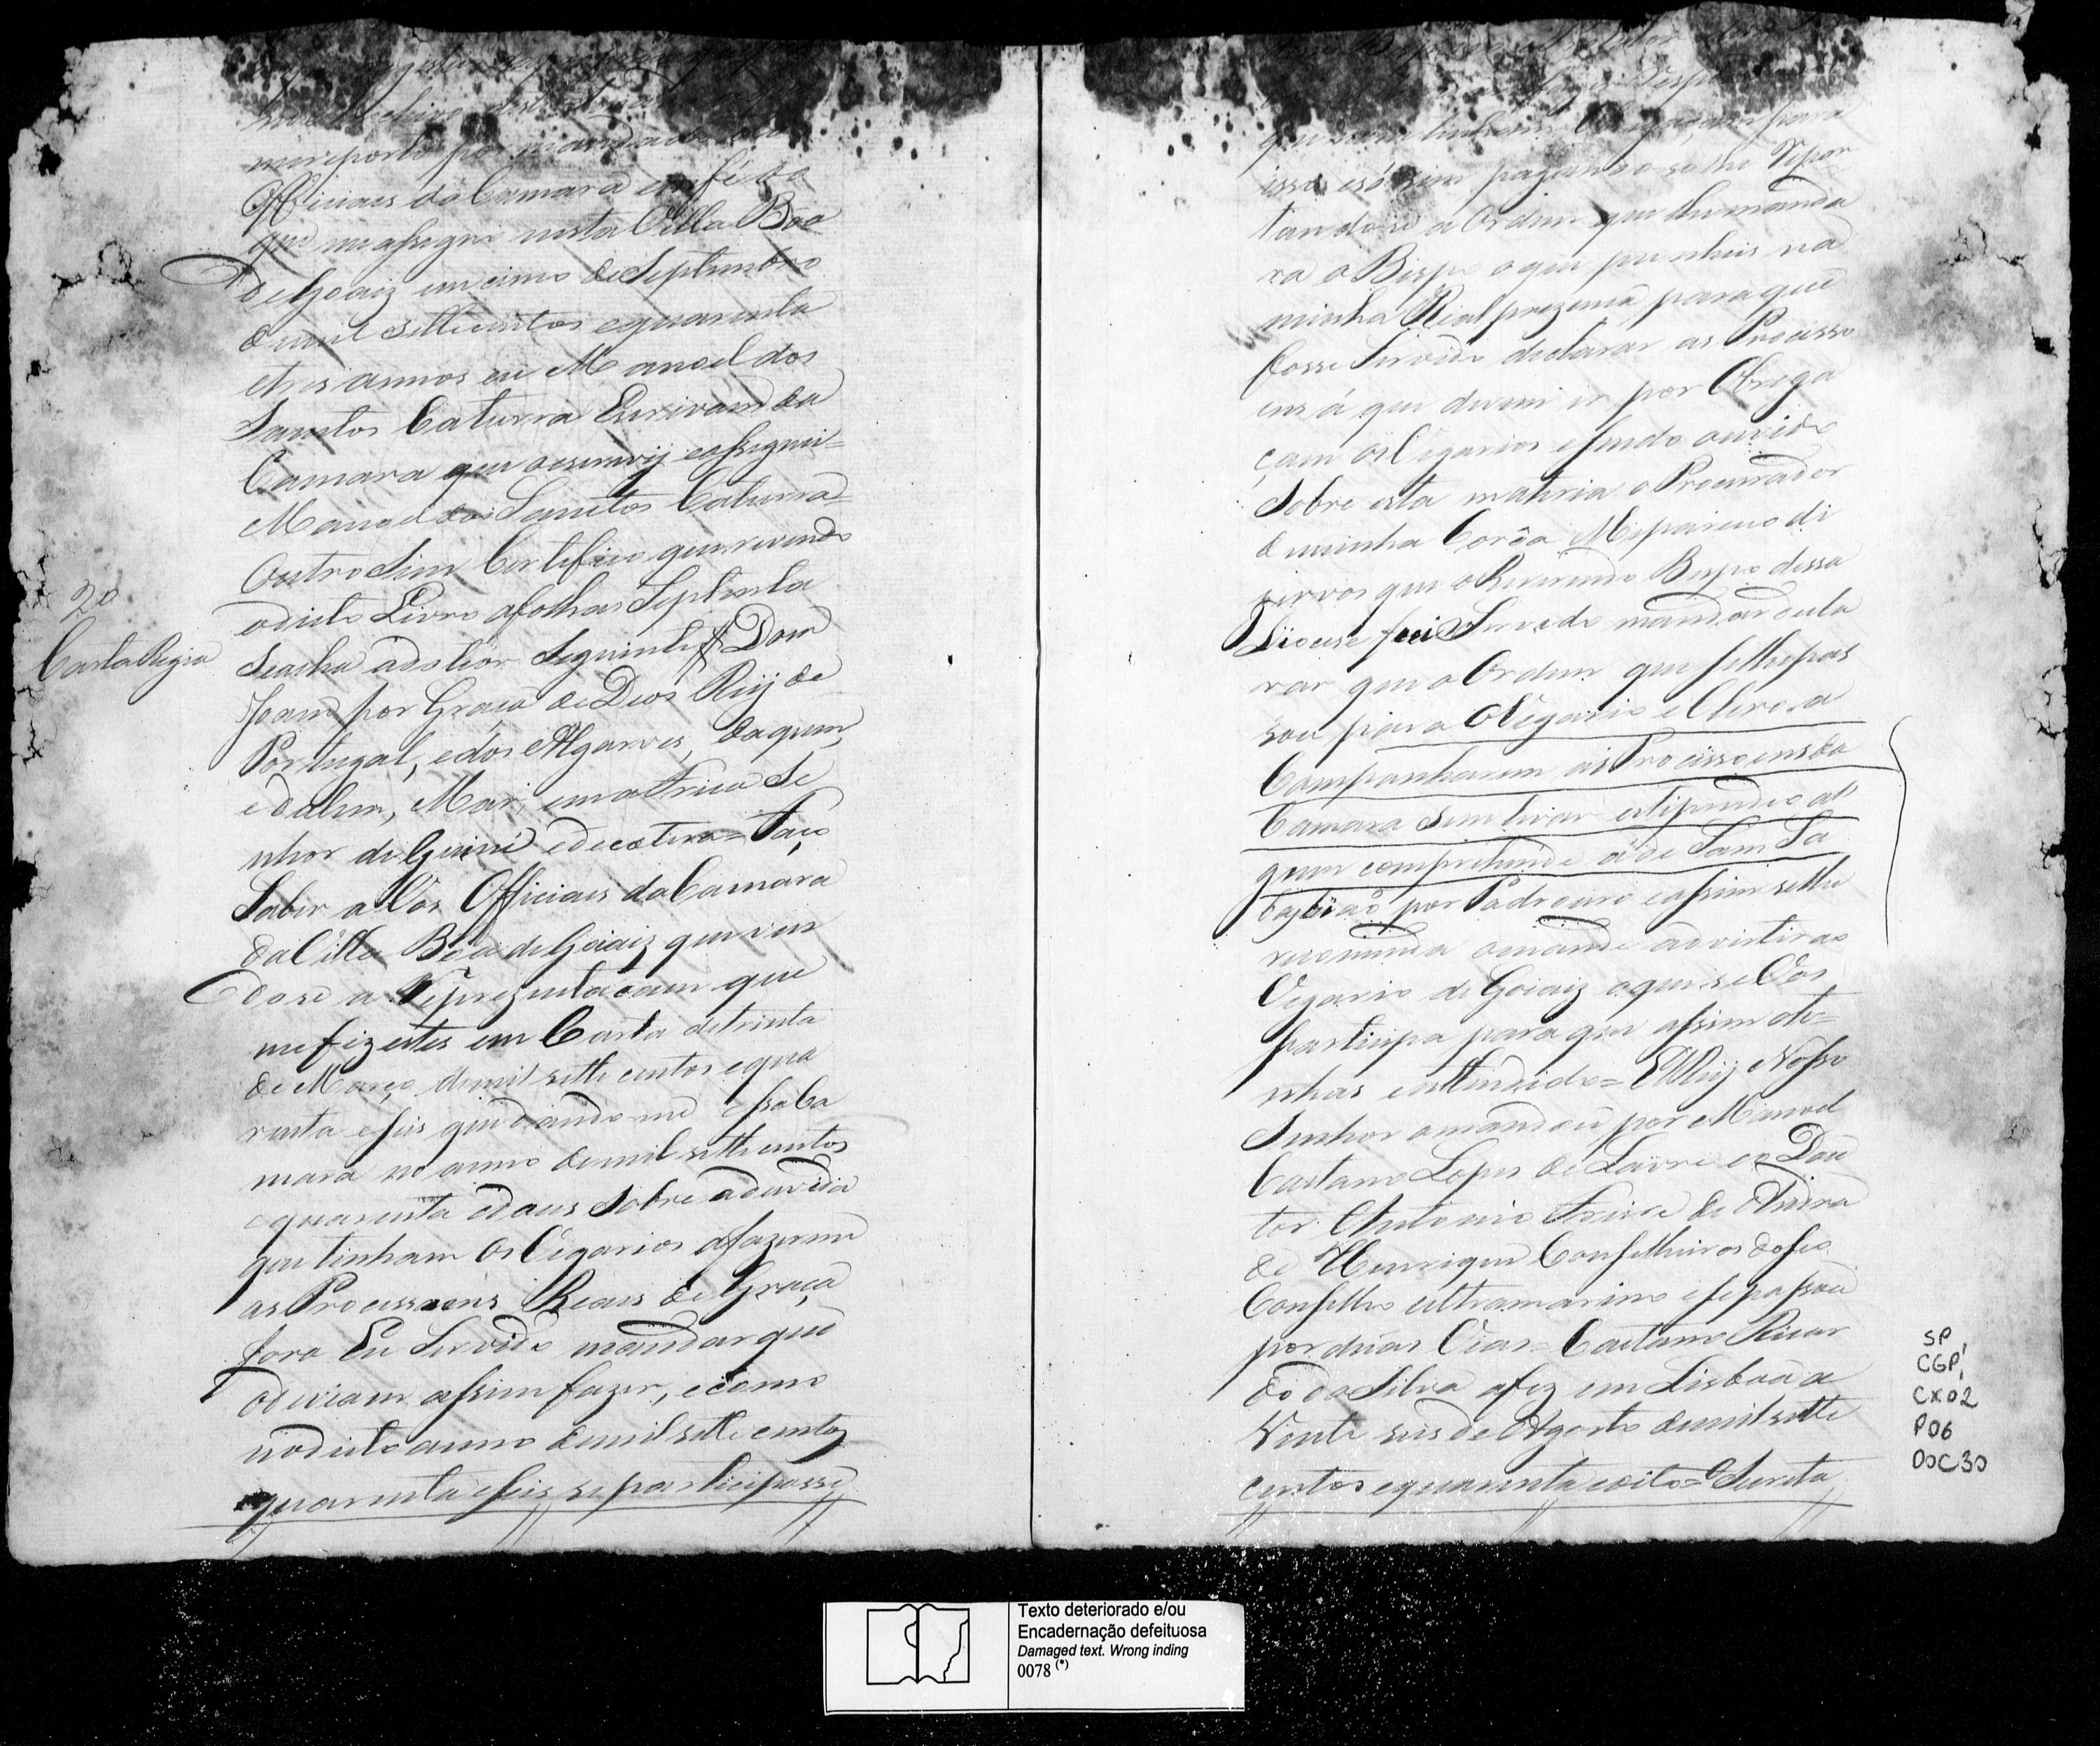 me reporto por mandado dos
Officiais da Camara em fé do
que me assignei nesta Villa Boa
de Goaiz em cinco de Septembro
de mil settecentos e quarenta
e tres annos eu Manoel dos
Santos Caturra Escrivam da
Camara que o escrevij e assignei=
Manoel dos Santos Caturra=
Outro Sim Certefico que revendo
o dicto Livro a folhas Septenta
2º
Carta Regia
Se acha ado theór Seguinte Dom
Joam por Graca de Deos Reij de
Portugal, e dos Algarves, daquem,
e dalem, Mar, em Africa Se
nhor de Guiné e de cetera= Faço
Saber a Vós Officiais da Camara
da Villa Boa de Goiaiz que ven
do se a Reprezentacam que
me fizestes em Carta de trinta
de Março de mil sette centos e qua
renta e seis que dando me essa Ca
mara no anno de mil sette centos
e quarenta e dous Sobre a duvida
que tinham os Vegarios a fazerem
as Procissoens Reais de Graça
fora Eu Servido mandar que
o deviam assim fazer, e como
no dicto anno de mil sette centos
quarenta e seis se participasse
que nam tinham Obrigaçam para
isso e só sim pagando-se lhe Repor
tando se a Ordem que lhe manda
ra o Bispo o que punheis na
minha Real prezença para que
fosse Servido declarar as Procisso
ens á que devem ir por Obriga
çam os Vegarios e sendo ouvido
Sobre esta materia o Procurador
de minha Corôa Me pareceo di
zervos que o Reverendo Bispo dessa
Diocese fui Servido mandar decla
rar que a Ordem que se lhe pas
sou para o Vegario e Clero a
Companharem as Procissoens da
Camara sem levar estipendio al
gum comprehende á de Sam Se
bastiaõ por Padroeiro e assim se lhe
recomenda o mande advirtir ao
Vegario de Goiaiz o que se Vos
participa para que assim ote=
nhas entendido= ElRey Nosso
Senhor o mandou por Manoel
Caetano Lopes de Lavre e o Dou
tor Antonio Freire de Andra
de Henriques Conselheiros do seo
Conselho ultramarino e se passou
por duas Vias= Caetano Ricar
do da Silva a fez em Lisboa a
Vinte seis de Agosto de mil sette
centos e quarenta e oito= O Secreta
SP
CGP,
CX02
P06
DOC30
Texto deteriorado e/ou
Encadernação defeituosa
Damaged text. Wrong inding
0078 (*)